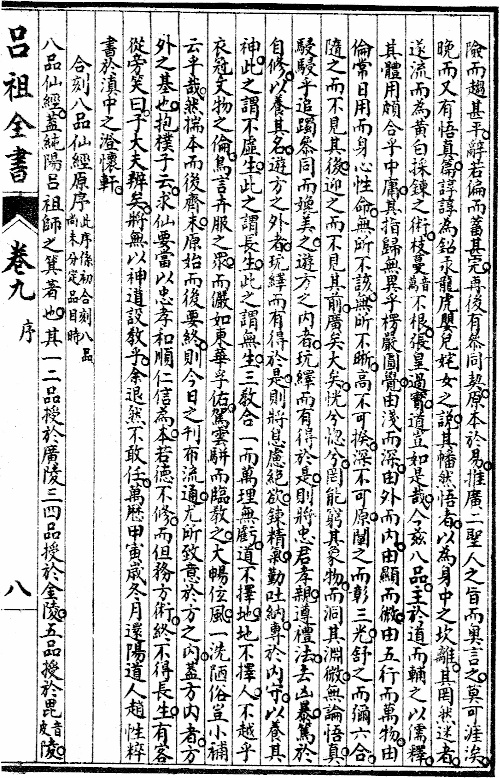 險而趨甚平辭若偏而蓄甚完再後有參同契原本於易推廣二聖人之旨而奧言之莫可涯涘
晚而又有悟真篇諄諄為鉛汞龍虎嬰兒姹女之說其幡然悟者以為身中之坎離其罔狀迷者
遂流而為黃白採鍊之術枝蔓音萬不根張皇過實道豈如是哉今茲八品主於道而輔之以儒釋
其體用頗合乎中庸其指歸無異乎楞嚴圓覺由淺而深由外而內由顯而微由五行而萬物由
倫常日用而身心性命無所不該無所不晰高不可揆深不可原闇之而彰三光舒之而彌六合
隨之而不見其後迎之而不見其前廣矣大矣恍兮惚兮罔能窮其象物而洞其淵微無論悟真
駸駸乎追躅參同而媲美之遊方之內者玩繹而有得於是則將忠君孝親遵禮法去凶暴篤於
自修以養其名遊方之外者玩繹而有得於是則將息慮絕欲鍊精氣勤吐納專於內守以養其
神此之謂不虛生此之謂長生此之謂無生三教合一而萬理無虧道不擇地地不擇人不越乎
衣冠文物之倫鳥言卉服之眾而儼如東華孚佑駕雲駢而臨教之大暢位風一洗陋俗豈小補
云乎哉然揣本而後齊末原始而後要終則今日之刊布流通尤所致意於方之內蓋方內者方
外之基也抱樸子云求仙要當以忠孝和順仁信為本若德不修而但務方術終不得長生有客
從旁笑曰子大夫辨矣將無以神道設教乎余退然不敢任萬曆甲寅歲冬月還陽道人趙性粹
書於滇中之澄懷軒
合刻八品仙經原序此序係初合刻八品尚未分定品目時
八品仙經蓋純陽呂祖師之箕著也其一二品授於廣陵三四品授於金陵五品授於毘音皮陵
呂祖全書
卷九
序
八